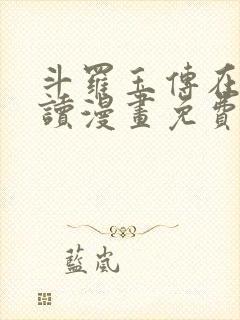 斗羅玉傳在
讀漫畫免費
藍嵐